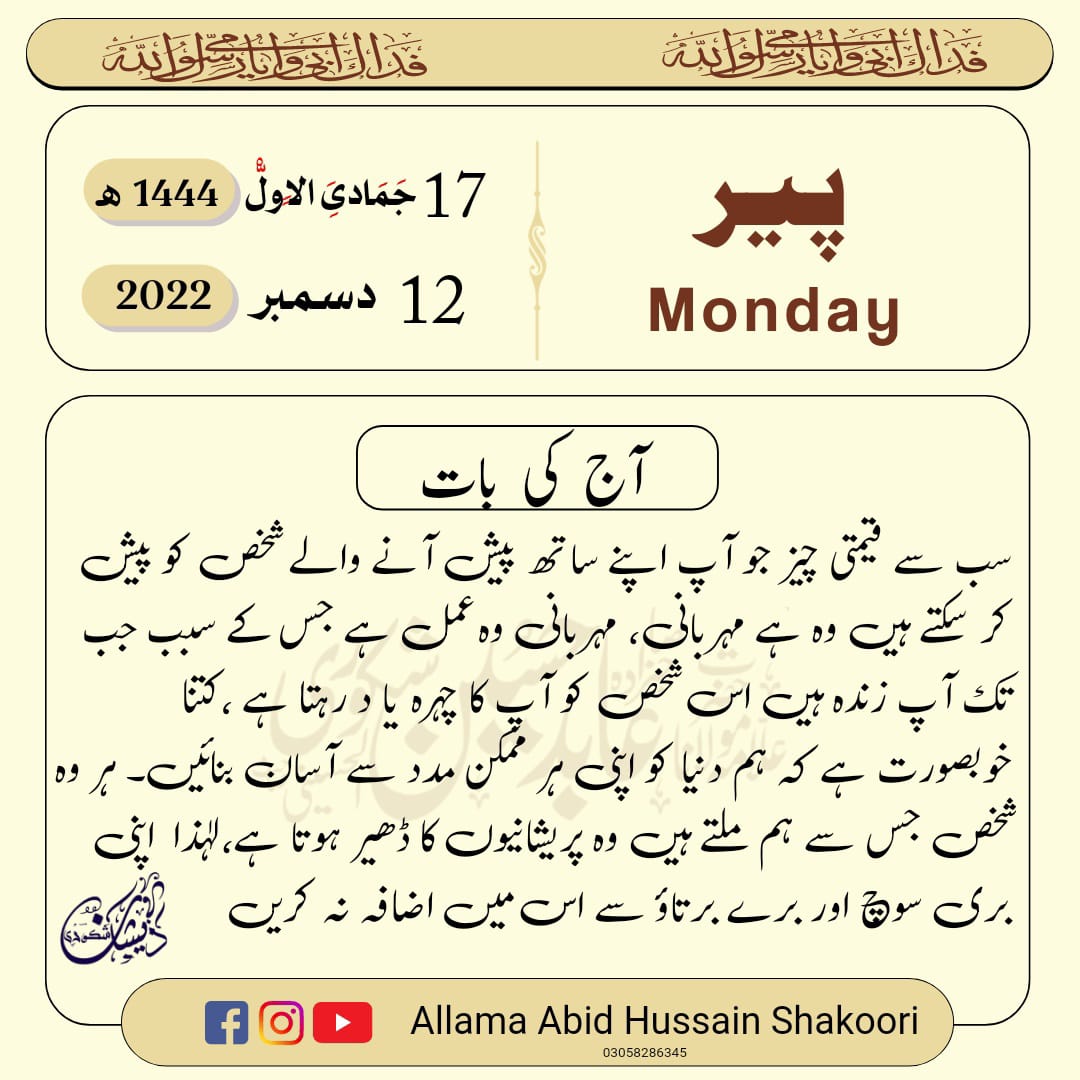 فداك ابی وامی یارسول اللہ فداك ابی وامی یارسول اللہ
پیر
Monday
17 جَمَادیِ الاوِلؒ 1444 ھ
12 دسمبر 2022
آج کی بات
سب سے قیمتی چیز جو آپ اپنے ساتھ پیش آنے والے شخص کو پیش
کر سکتے ہیں وہ ہے مہربانی، مہربانی وہ عمل ہے جس کے سبب جب
تک آپ زندہ ہیں اس شخص کو آپ کا چہرہ یا د رہتا ہے ،کتنا
خوبصورت ہے کہ ہم دنیا کو اپنی ہر ممکن مدد سے آسان بنائیں۔ ہر وہ
شخص جس سے ہم ملتے ہیں وہ پریشانیوں کا ڈھیر ہوتا ہے،لہٰذا اپنی
بری سوچ اور برے برتاؤ سے اس میں اضافہ نہ کریں
Allama Abid Hussain Shakoori
03058286345